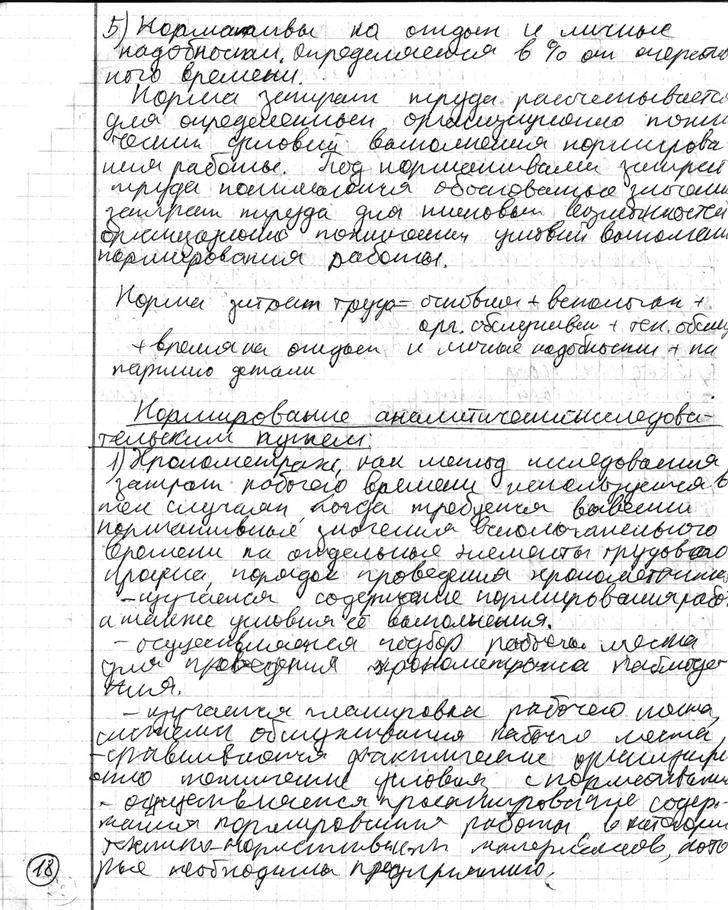 5) Нормативы на отдых и личные
надобности, определяется в % от операти
ного времени.
Норма затрат труда рассчитывается
для определенных организационно техни
ческих условий выполнения нормирова
ния работы. Под нормативами затрат
труда понимаются обоснованные значени
затрат труда для типовых возможностей
организационно технических условий выполнен
нормирования работы.
Норма затрат труда= основная + вспомогат +
орг. обслуживан + тех. обслу
+ время на отдых и личные надобности + на
партию детали
Нормирование аналитически-исследова-
тельским путем:
1) Хронометраж, как метод исследования
затрат рабочего времени используется в
тех случаях, когда требуется вывести
нормативные значения вспомогательного
времени на отдельные элементы трудового
процесса, порядок проведения хронометража
- изучается содержание нормирования рабо
а также условия её выполнения.
- осуществляется подбор рабочего места
для проведения хронометража наблюде
ния.
- изучается планировка рабочего места,
системы обслуживания рабочего места,
- сравниваются фактические организаци
онно технические условия с нормативами
- осуществляется проектирование содер-
жания нормирования работы и
технико-нормативных материалов, кото
рые необходимы предприятию.
18